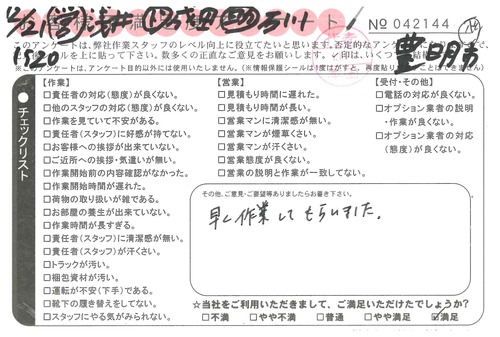 № 042144
このアンケートは、弊社作業スタッフのレベル向上に役立てたいと思います。否定的なアン
豊明市
1520
チェックリスト
【作業】
□責任者の対応(態度)が良くない。
□他のスタッフの対応(態度)が良くない。
□作業を見ていて不安がある。
□責任者(スタッフ)に好感が持てない。
□お客様への挨拶が出来ていない。
□ご近所への挨拶・気遣いが無い。
□作業開始前の内容確認がなかった。
□作業開始時間が遅れた。
□荷物の取り扱いが雑である。
□お部屋の養生が出来ていない。
□作業時間が長すぎる。
□責任者(スタッフ)に清潔感が無い。
□責任者(スタッフ)が汗くさい。
□トラックが汚い。
□梱包資材が汚い。
□運転が不安(下手)である。
□靴下の履き替えをしてない。
□スタッフにやる気がみられない。
【営業】
□見積もり時間に遅れた。
□見積もり時間が長い。
□営業マンに清潔感が無い。
□営業マンが煙草くさい。
□営業マンが汗くさい。
□営業態度が良くない。
□営業の説明と作業が一致してない。
【受付・その他】
□電話の対応が良くない。
□オプション業者の説明
・作業が良くない。
□オプション業者の対応
(態度)が良くない。
その他、ご意見・ご要望等ありましたらお書き下さい。
早く作業してもらいました。
☆当社をご利用いただきまして、ご満足いただけたでしょうか?
□不満 □やや不満 □普通 □やや満足 ☑満足